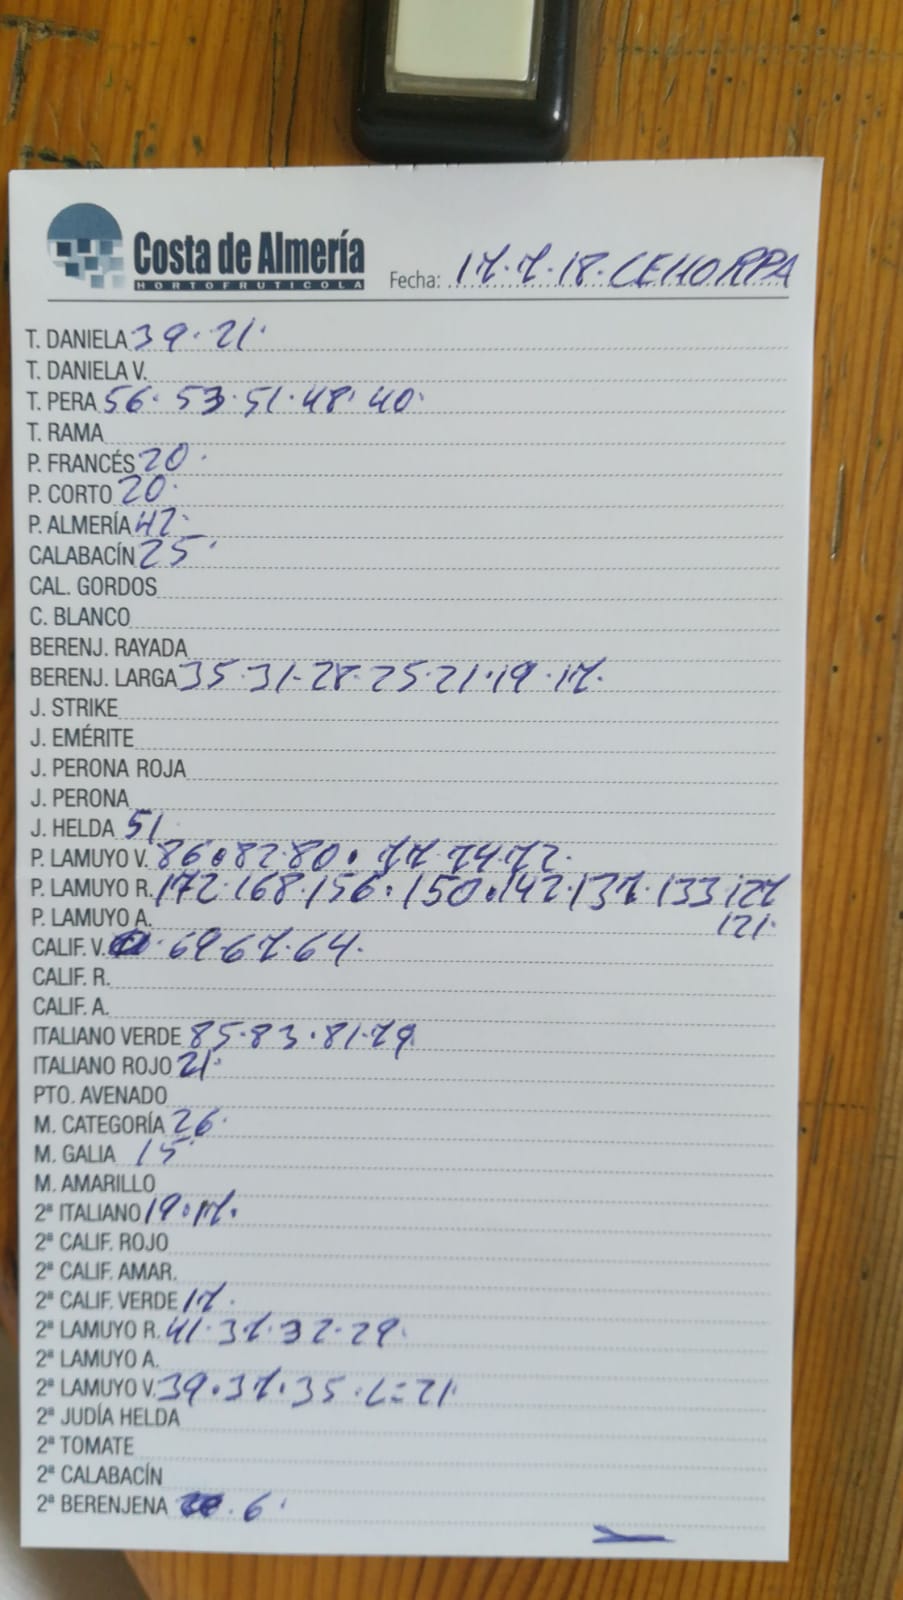 Costa de Almería
HORTOFRUTICOLA
Fecha: 17.7.18. CEHORPA
T. DANIELA 39. 21.
T. DANIELA V.
T. PERA 56. 53. 51. 48. 40.
T. RAMA
P. FRANCÉS 20.
P. CORTO 20.
P. ALMERÍA 42.
CALABACÍN 25.
CAL. GORDOS
C. BLANCO
BERENJ. RAYADA
BERENJ. LARGA 35. 31. 28. 25. 21. 19. 17.
J. STRIKE
J. EMÉRITE
J. PERONA ROJA
J. PERONA
J. HELDA 51
P. LAMUYO V. 86. 82. 80. 77. 74. 72.
P. LAMUYO R. 172. 168. 156. 150. 142. 137. 133 127
P. LAMUYO A. 121.
CALIF. V. 69. 67. 64.
CALIF. R.
CALIF. A.
ITALIANO VERDE 85. 83. 81. 79
ITALIANO ROJO 21.
PTO. AVENADO
M. CATEGORÍA 26.
M. GALIA 15
M. AMARILLO
2ª ITALIANO 19. 17.
2ª CALIF. ROJO
2ª CALIF. AMAR.
2ª CALIF. VERDE 17.
2ª LAMUYO R. 41. 37. 32. 29.
2ª LAMUYO A.
2ª LAMUYO V. 39. 37. 35. L=21.
2ª JUDÍA HELDA
2ª TOMATE
2ª CALABACÍN
2ª BERENJENA 6.